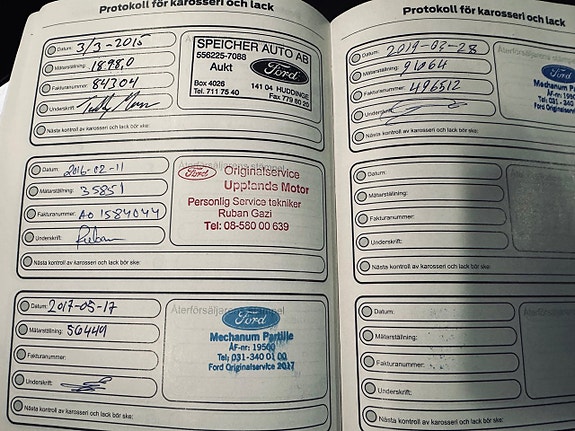 Protokoll för karosseri och lack
Datum: 3/3-2015
Mätarställning: 1898,0
Fakturanummer: 84304
Underskrift:
Nästa kontroll av karosseri och lack bör ske:
SPEICHER AUTO AB
556225-7088
Aukt Ford
Box 4026 141 04 HUDDINGE
Tel. 711 75 40 Fax 779 80 20
Datum: 2016-02-11
Mätarställning: 35851
Fakturanummer: AO 1584044
Underskrift: Ruban
Nästa kontroll av karosseri och lack bör ske:
Återförsäljarens stämpel
Ford Originalservice
Upplands Motor
Personlig Service tekniker
Ruban Gazi
Tel: 08-580 00 639
Datum: 2017-05-17
Mätarställning: 56449
Fakturanummer:
Underskrift:
Nästa kontroll av karosseri och lack bör ske:
Återförsäljarens stämpel
Ford
Mechanum Partille
ÅF-nr: 19500
Tel: 031-340 01 00
Ford Originalservice 2017
Protokoll för karosseri och lack
Datum: 2019-03-28
Mätarställning: 91064
Fakturanummer: 496512
Underskrift:
Nästa kontroll av karosseri och lack bör ske:
Återförsäljarens stämpel
Ford
Mechanum
ÅF-nr:
Tel: 031-340
Ford Originalservice
Datum:
Mätarställning:
Fakturanummer:
Underskrift:
Nästa kontroll av karosseri och lack bör ske:
Datum:
Mätarställning:
Fakturanummer:
Underskrift:
Nästa kontroll av karosseri och lack bör ske: